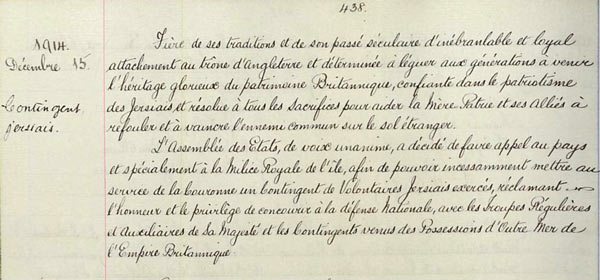 438.
1914.
Décembre 15.
Contingent
Jersiais.
Fière de ses traditions et de son passé séculaire d'inébranlable et loyal
attachement au trône d'Angleterre et déterminée à léguer aux générations à venir
l'héritage glorieux du patrimoine Britannique, confiante dans le patriotisme
des Jersiais et résolue à tous les Sacrifices pour aider la Mère Patrie et ses Alliés à
refouler et à vaincre l'ennemi commun sur le sol étranger.
L'Assemblée des Etats, de voix unanime, a décidé de faire appel au pays
et spécialement à la Milice Royale de l'île, afin de pouvoir incessamment mettre au
service de la Couronne un contingent de Volontaires Jersiais exercés, réclamant
l'honneur et le privilège de concourir à la défense Nationale, avec les Troupes Régulières
et Auxiliaires de Sa Majesté et les Contingents venus des Possessions d'Outre Mer de
l'Empire Britannique.